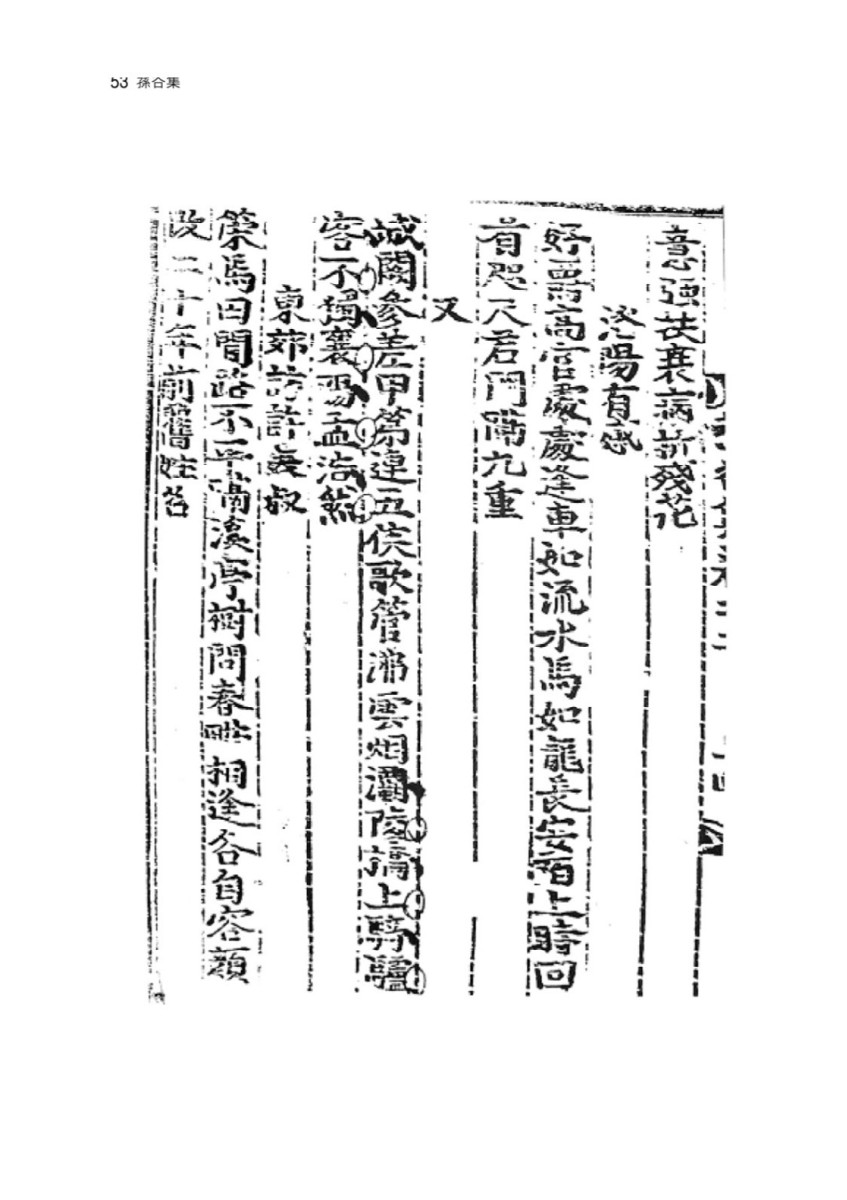 53 孫合集
意强扶衰病折殘花
洛陽有感
好爵高官處處逢車如流水馬如龍長安陌上時回
首咫尺君門萬九重
又
城闕參差甲第連五侯歌管沸雲烟灞陵橋上騎驢
客不獨襄陽孟浩然
東郊訪許表叔
策馬田間路不平隔溪亭樹問春畊相逢各自容顔
改二十年前舊姓名